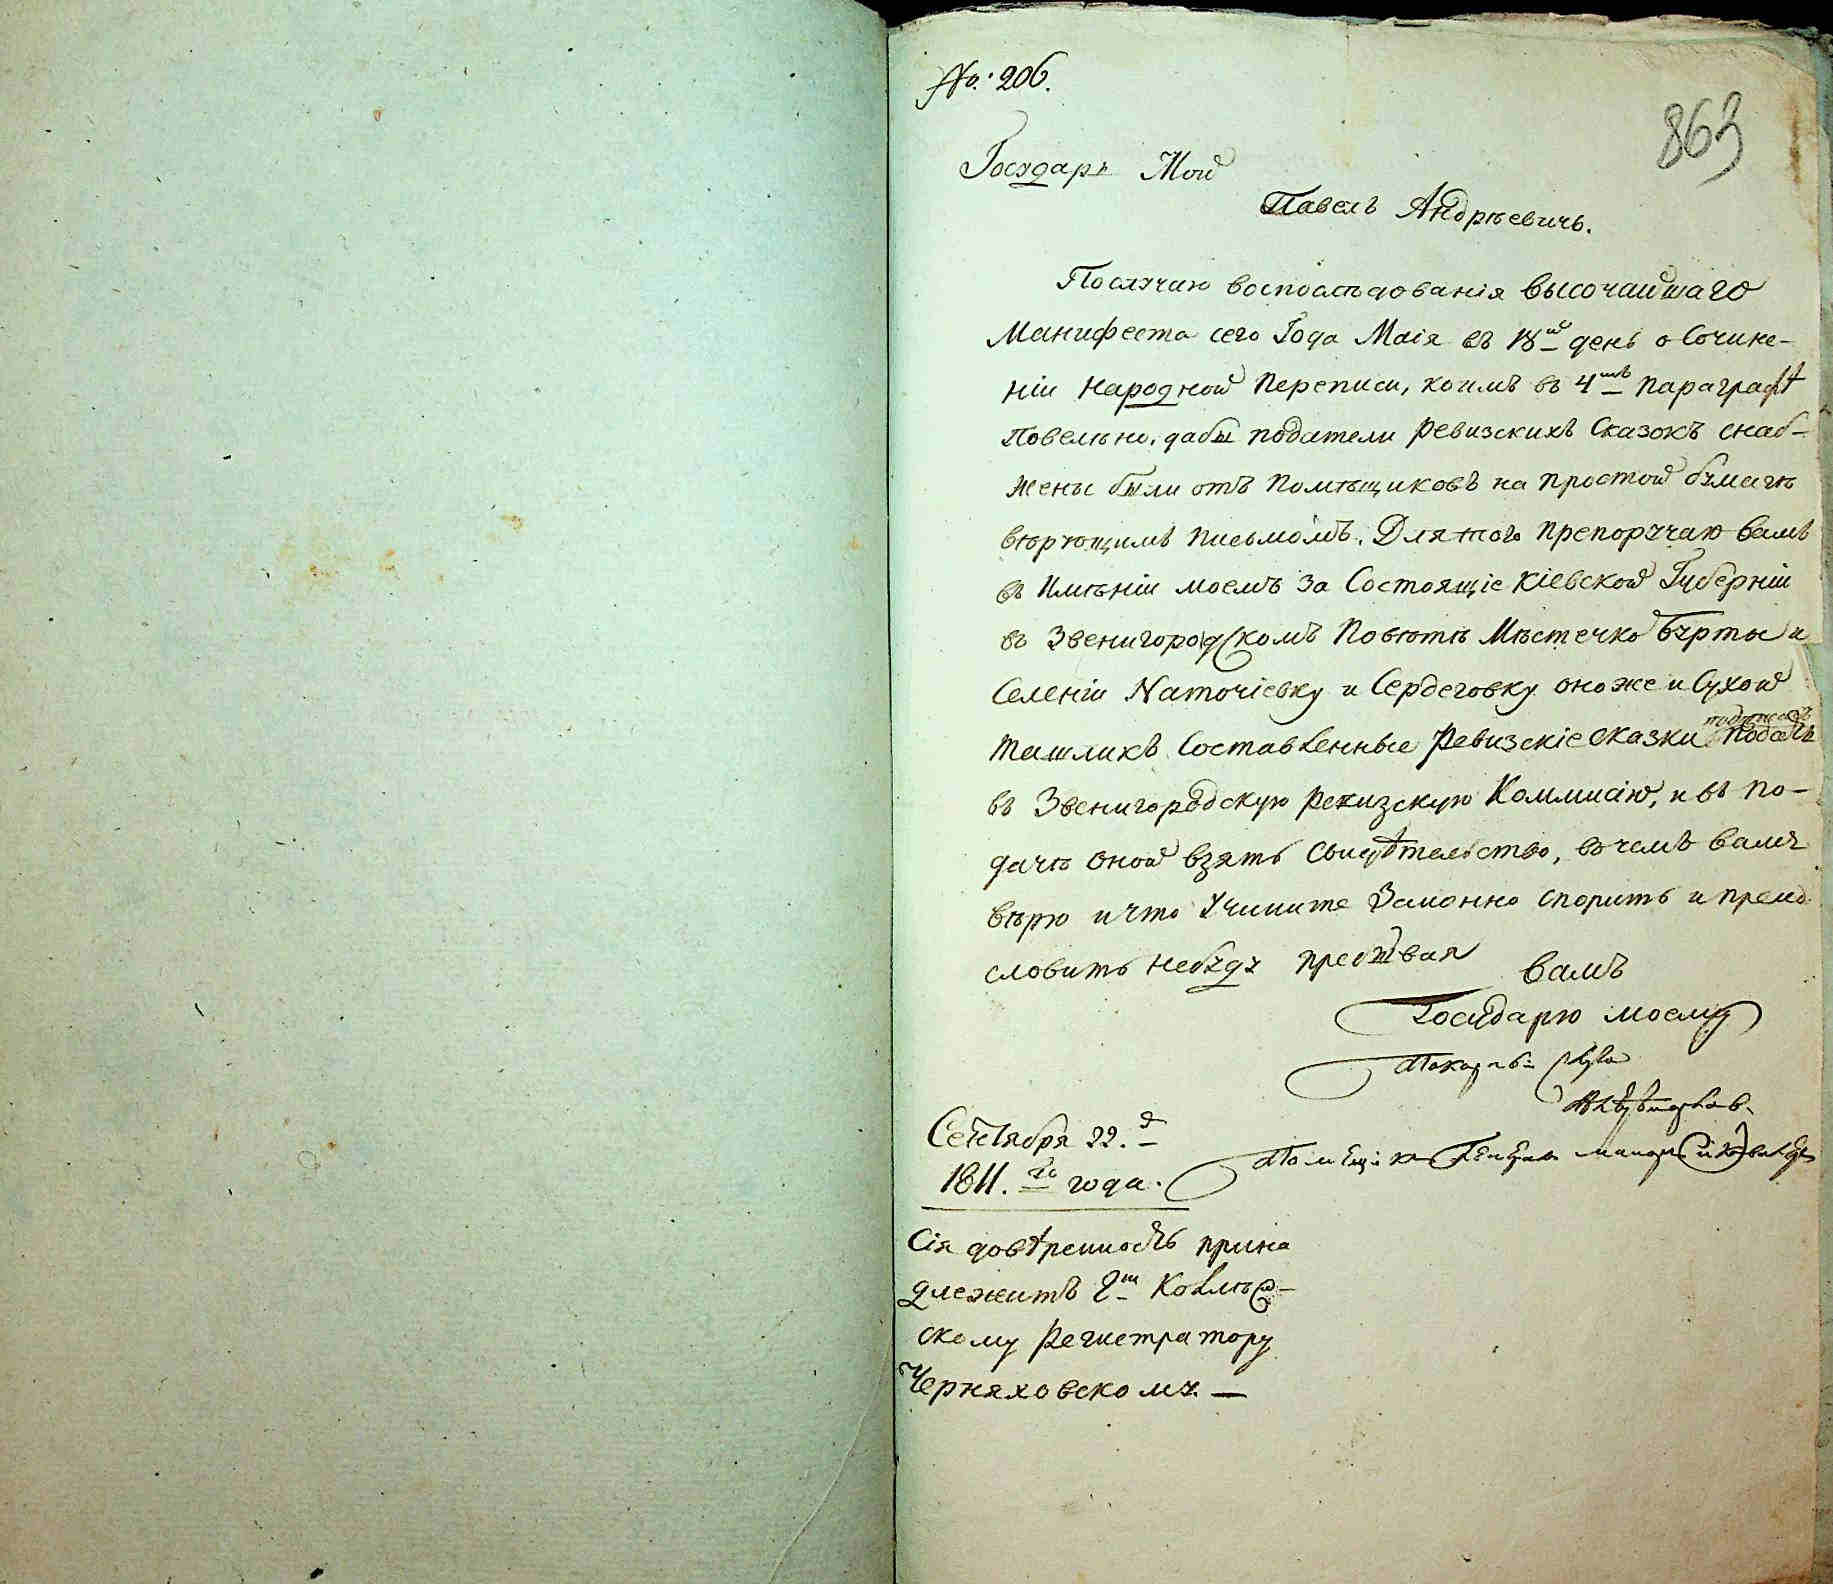 №. 206.
863
Государь Мой
Павелъ Андрѣевичь.
Послучаю воспослѣдованія высочайшаго
Манифеста сего Года Маія въ 18й день о Сочине-
ніи народной переписи, коимъ въ 4мъ параграфѣ
повелѣно. дабы податели ревизскихъ Сказокъ снаб-
жены были отъ помѣщиковъ на простой бумагѣ
вѣрющимъ письмомъ. Для того препоручаю вамъ
въ Имѣніи моемъ за Состоящіе кіевской Губерніи
въ Звенигородскомъ повѣтѣ Мѣстечко Бурты и
Селеніи Наточіевку и Сердеговку оноже и Сухой
ташликъ Составленные Ревизскіе сказки подать
въ Звенигородскую ревизскую Коммисію, и въ по-
дачѣ оной взять свидѣтельство, въ чемъ вамъ
вѣрю и что Учините Законно спорить и преко
словить небуду пребывая вамъ
Государю моему
слуга
Сентября 22. д
1811. го года.
Сія довѣренность прина
длежитъ Г Колле
скому Регистратору
Черняховскому. —